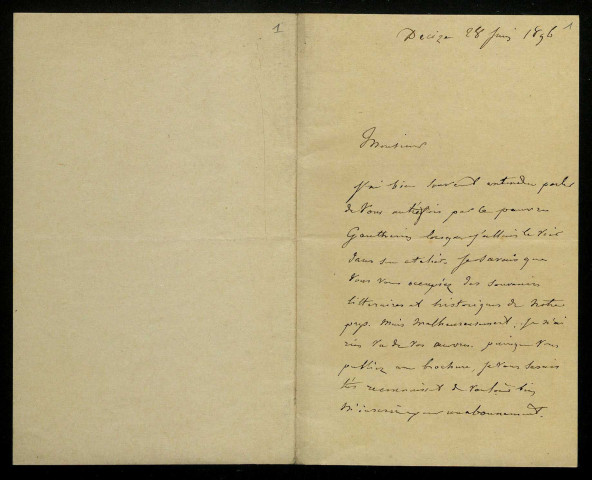 1
1
Decize 28 Juin 1896
Monsieur
J'ai bien souvent entendu parler
de vous par ce pauvre
Gautherin lorsque j'allais le voir
dans son atelier. Je savais que
vous vous occupiez des souvenirs
littéraires et historiques de notre
pays. Mais malheureusement, je n'ai
rien vu de vos œuvres. puisque vous
publiez une brochure, je vous serais
très reconnaissant de vouloir bien
m'inscrire pour un abonnement.